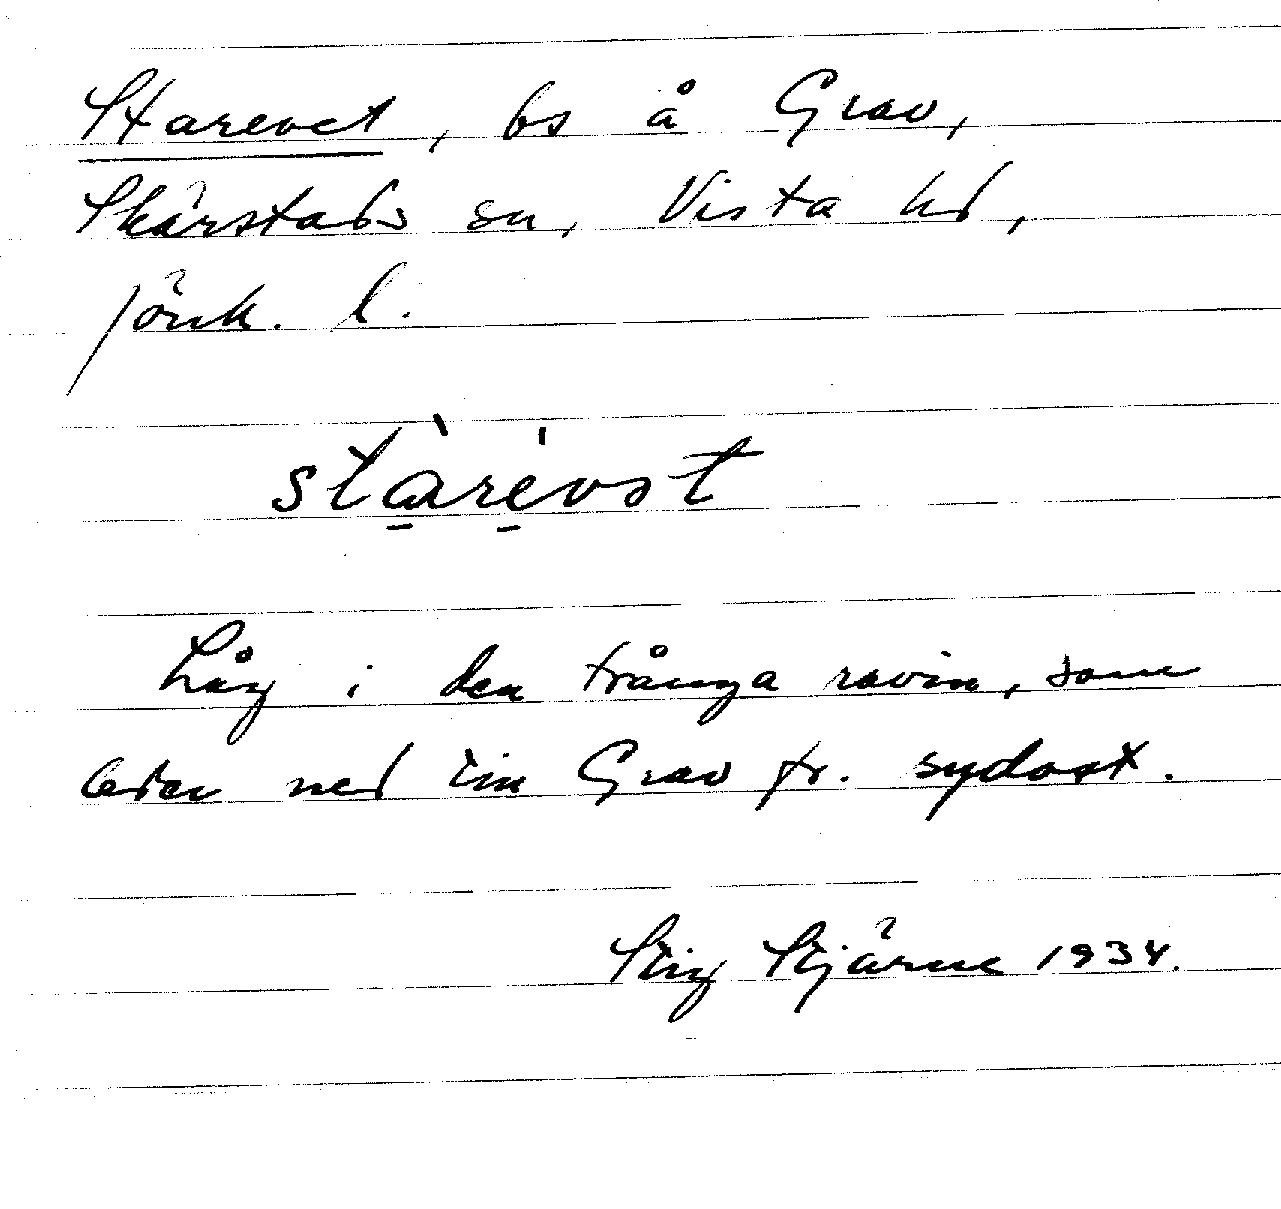 Starevet, bs å Grav,
Skärstads sn, Vista hd,
Jönk. l.
stàrévət
Låg i den trånga ravin, som
leder ned till Grav fr. sydost.
Stig Stjärne 1934.